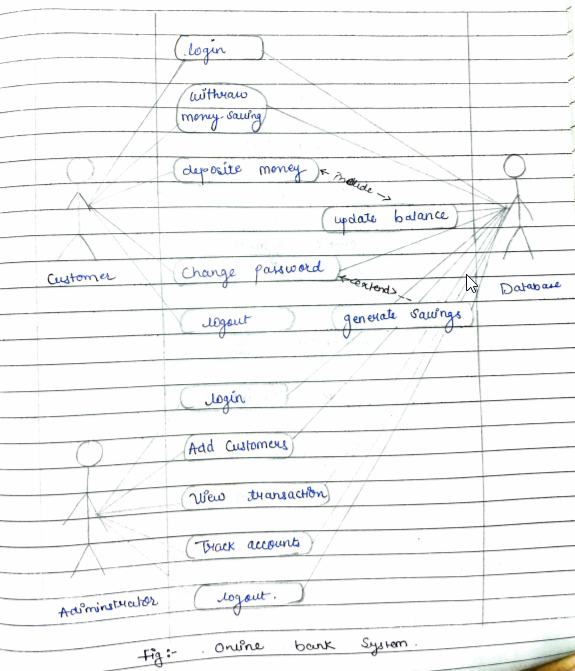 login
withraw
money saving
deposite money
include
update balance
Customer
Change password
extends
Database
logout
generate Savings
login
Add Customers
View transaction
Track accounts
Adiminstrator
logout.
Fig:- Online bank System.